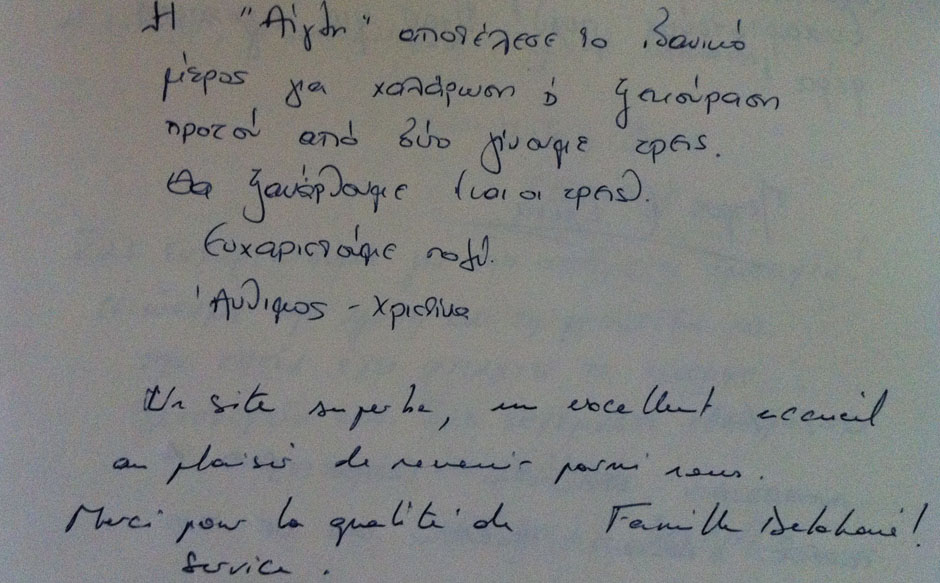 Η "Αίγλη" αποτέλεσε το ιδανικό
μέρος για χαλάρωση & ξεκούραση
προτού από δύο γίνουμε τρεις.
Θα ξανάρθουμε (και οι τρεις).
Ευχαριστούμε πολύ.
Άνθιμος - Χριστίνα
Un site superbe, un excellent accueil
au plaisir de revenir parmi vous.
Merci pour la qualité de Famille
service.